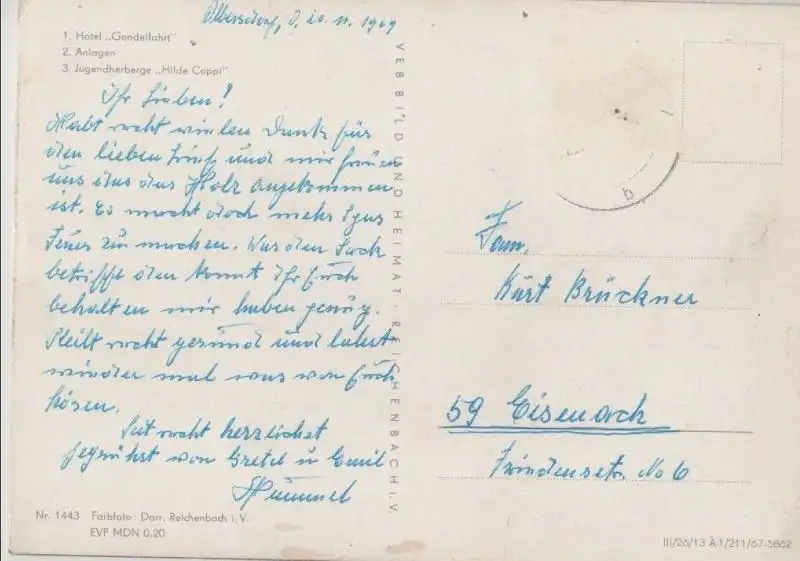 Olbersdorf, d. 20. 11. 1969
1. Hotel „Gondelfahrt"
2. Anlagen
3. Jugendherberge „Hilde Coppi"
Ihr Lieben!
Habt recht vielen Dank für
den lieben Brief und wir freuen
uns das das Holz angekommen
ist. Es macht doch mehr Spas
Feuer zu machen. Was den Sack
betrifft den könnt Ihr Euch
behalten wir haben genug.
Bleibt recht gesund und lasst
wieder mal was von Euch
hören.
Seit recht herzlichst
gegrühst von Gretel u Emil
Hummel
Nr. 1443 Farbfoto: Darr, Reichenbach i. V.
EVP MDN 0,20
VEB BILD UND HEIMAT · REICHENBACH i.V.
Fam.
Kurt Brückner
59 Eisenach
Friedensstr. No 6
III/26/13 A 1/211/67-5862